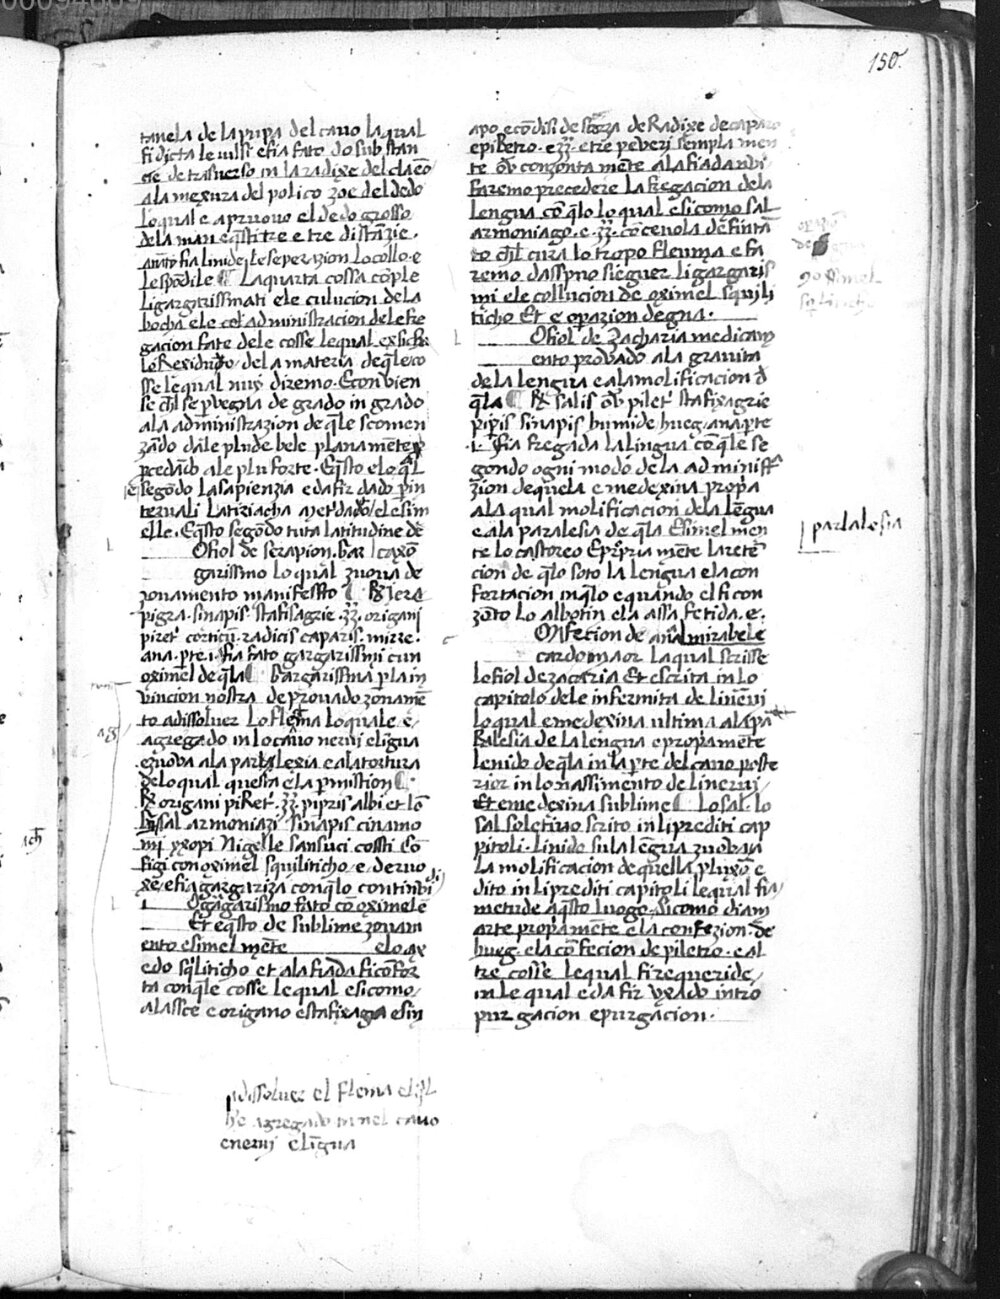 150.
tanela de la pupa del cauo la qual
fi dicta le uulsi e fia fato do substan
cie de trasuerso in la radixe del claeo
a la mexura del polico zoe del dedo
lo qual e apruouo el dedo grosso
dela man e q̄sti tre e tre distāzie.
fia linide le seperazion lo collo e
le spōdile ¶ La quarta cossa cōple
li gargarissmati e le culucion de la
bocha e le administracion dele fre
gacion fate dele cosse le qual exsicha
lo Rexiduo de la materia de q̄le co
sse le qual nuy diremo. E con uien
se ch̄l se puegna de grado in grado
ala administrazion de q̄le scomen
zādo dale plu debele plana mēte
pcedādo ale plu forte. E q̄sto e lo q̄l
segōdo la sapienzia e da fir dado p in
teruali la tiriacha dado el esim
elle. E q̄sto segōdo tuta latitudine de
Ofiol de serapion. Gar caxō
garissmo lo qual zuoua de
zouamento manifessto ¶ ℞ Iera
pigra. sinapis. stafisagrie. ʒʒ. origani
piret̄ corticū radicis caparis. mirre.
ana. pte. i. fia fato gargarissmi cun
oximel de q̄la ¶ Gargarissma p la in
uincion nostra de prouado zōnamē
to adissoluer lo flegma lo quale e
agregado in lo cauo nerui e līgua
e zuoua ala parlalexia e ala tortura
de lo qual questa e la pmistion ¶
℞ origani piret̄. ʒʒ. pipris albi et lō
sal armoniazi sinapis cinamo
mi yxopi nigelle sansuci cossti cō
figi con oximel squiliticho e deruo
xe e fia gargariza con q̄lo continuo
O gargarismo fato cō oximel e
Et e q̄sto de sublime zouam
ento e simel mēte e lo ox
edo sq̄liticho et ala fiada fi cōfor
ta con q̄le cosse le qual e si como
alassce e origano e stafixagra e sin
apo e cōdisi de scorza de Radixe de caparo
e piletro. e ʒʒ. e tre peueri sempla men
te ov̄ conzonta mēte ala fiada nui
faremo precedere la fregacion dela
lengua cō q̄lo lo qual e si como sal
armoniago. e ʒʒ. cō ceuola defin tā
to ch̄l cura lo tropo fleuma e fa
remo dasspuo sieguer li gargaris
mi e le collucion de oximel squili
ticho Et e opazion degna.
Ofiol de zacharia medicam
ento prouado ala grauita
dela lengua e ala molificacion d
q̄la ¶ ℞ salis ov̄ pilet̄ stafixagrie
pipis sinapis humide hueg. ana pte
.i. fia fregada la lingua cō q̄le se
gondo ogni modo de la administr
zion de quela e medexina propa
ala qual molificacion de la lēgua
e ala paralesia de q̄la E simel men
te lo castoreo E prpria mēte la retē
cion de q̄lo soto la lengua e la con
fortacion in q̄lo e quando el fi con
zōto lo albotin e la assa fetida. e.
Onfecion de anāl mirabele
cardomaor la qual scrisse
lo fiol de zacaria Et e scrita in lo
capitolo dele infermita de li nerui
lo qual e medexina ultima ala pa
Ralesia de la lengua e propa mēte
lenido de q̄la in la pte del cauo poste
rior in lo nassimento de li nerui
Et e medexina sublime ¶ Lo sal. lo
sal soletiuo scrito in li prediti cap
pitoli. linido su la lēgua zuoba a
la molificacion de quella plu xō e
dito in li prediti capitoli le qual fia
metude a q̄sto luogo. si como diam
arte propamēte e la confezion de
hueg. e la cōfecion de piletro. e al
tre cosse le qual fi requeride
in le qual e da fir vxado intro
purgacion e purgacion.
parlalesia
adissoluer el flema el q̄l
he agregado in nel cauo
e nerui e līgua